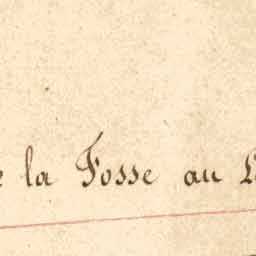 la Fosse au